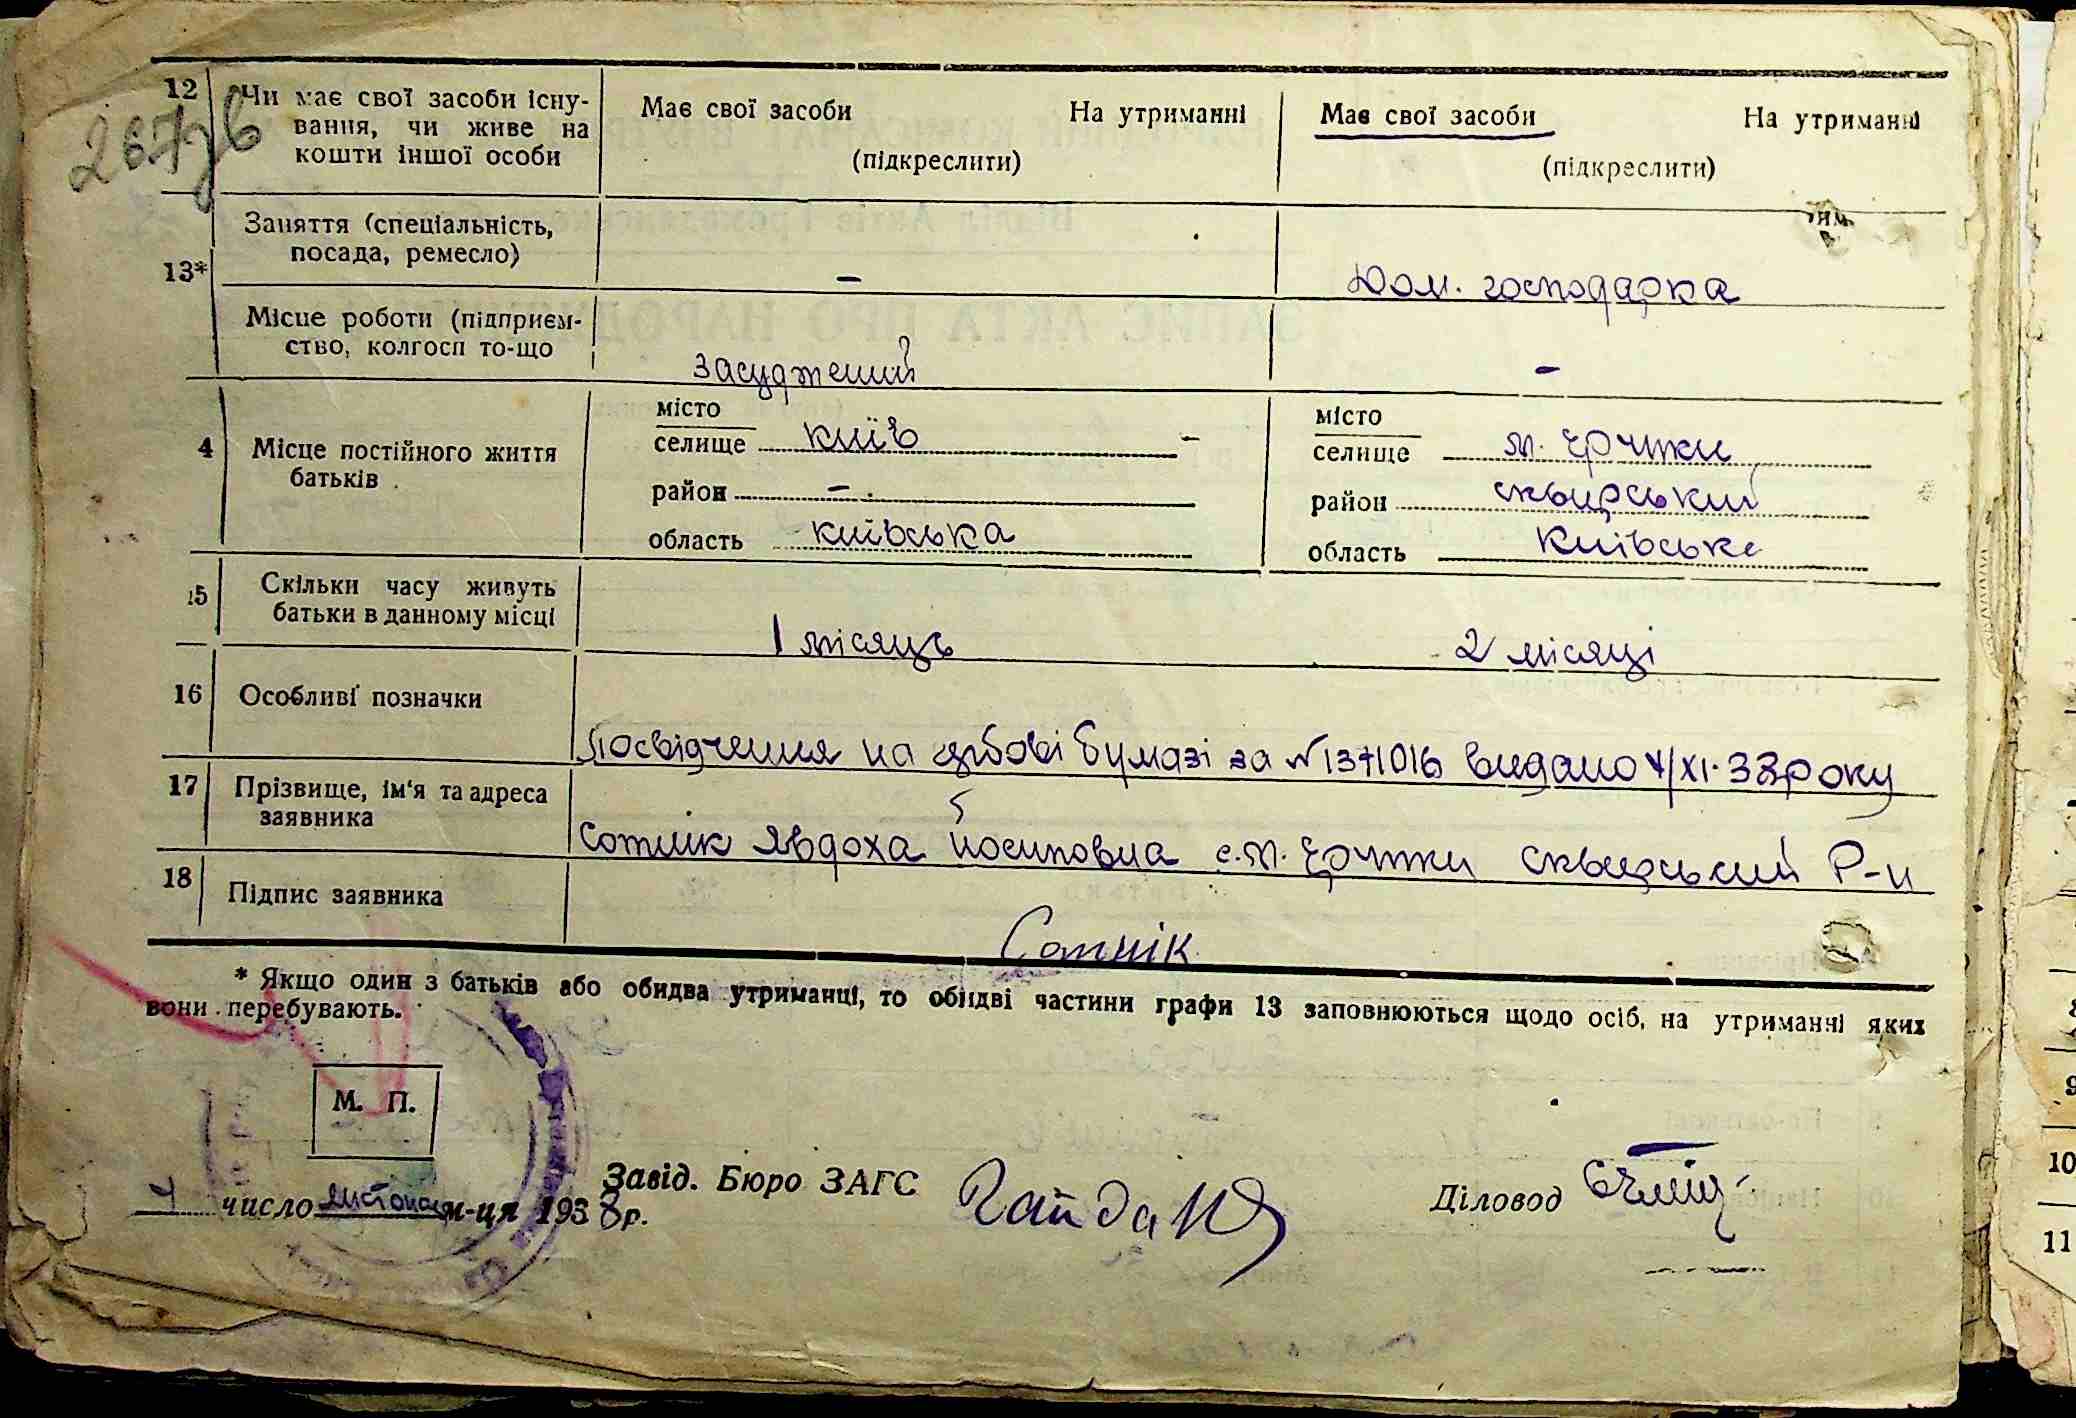 12 Чи має свої засоби існу- Має свої засоби На утриманні Має свої засоби На утриманні
вання, чи живе на
кошти іншої особи (підкреслити) (підкреслити)
Заняття (спеціальність,
посада, ремесло) – Дом. господарка
13*
Місце роботи (підприєм-
ство, колгосп то-що засуджений –
місто місто
4 Місце постійного життя селище Київ – селище м. Єрчики
батьків район – район сквирський
область київська область Київське
15 Скільки часу живуть
батьки в данному місці 1 місяць 2 місяці
16 Особливі позначки
Посвідчення на гербові бумазі за №1371016 видано 4/XI-38року
17 Прізвище, ім'я та адреса
заявника Сотнік Явдоха Йосиповна с.м. Єрчики сквирський Р-н
18 Підпис заявника Сотнік
* Якщо один з батьків або обидва утриманці, то обидві частини графи 13 заповнюються щодо осіб, на утриманні яких
вони перебувають.
М. П.
4 число листопад м-ця 1938р. Завід. Бюро ЗАГС Діловод